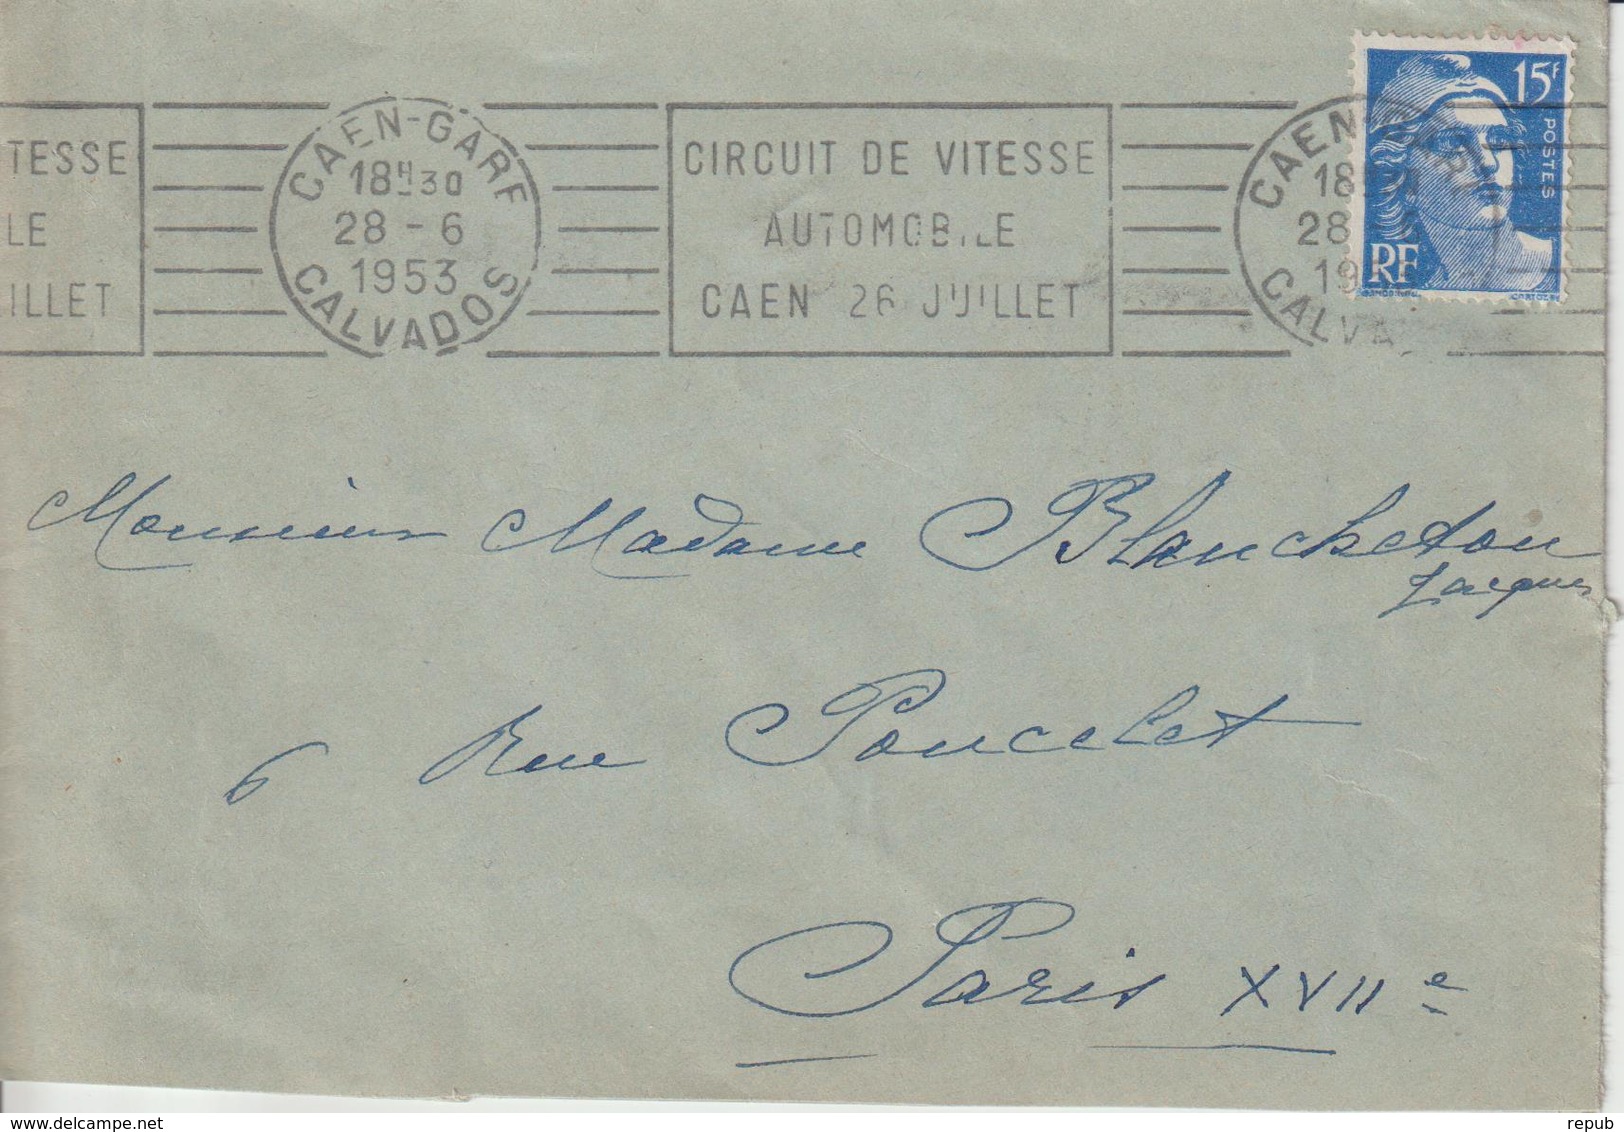 TESSE
LE
ILLET
CAEN-GARE
18H30
28-6
1953
CALVADOS
CIRCUIT DE VITESSE
AUTOMOBILE
CAEN 26 JUILLET
CAEN
18
28
19
CALVA
15F
POSTES
RF
Monsieur Madame Blancheton
Jacques
6 Rue Poncelet
Paris XVIIe
www.delcampe.net
repub